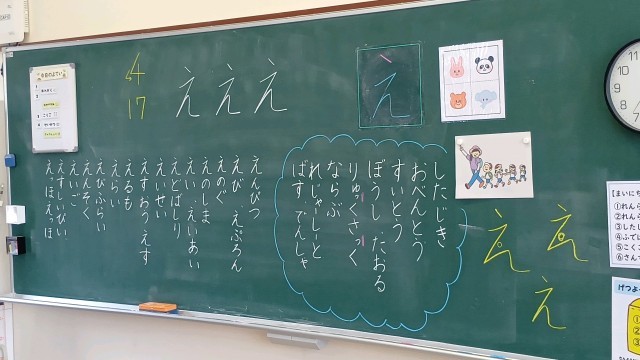 今日のよてい
4
17
え え え
え
したじき
おべんとう
すいとう
ぼうし たおる
りゅくさっく
ならぶ
れじゃーしーと
ばす でんしゃ
えんぴつ
えび えぷろん
えのぐ
えのしま
えい えいあい
えどばしり
えいせい
えすわう えす
えるも
えらい
えびふらい
えんそく
えいご
えっほえっほ
え
え
え
【まいにち
①れんら
②れんら
③したじ
④ふで
⑤こくご
⑥さん
げつよ